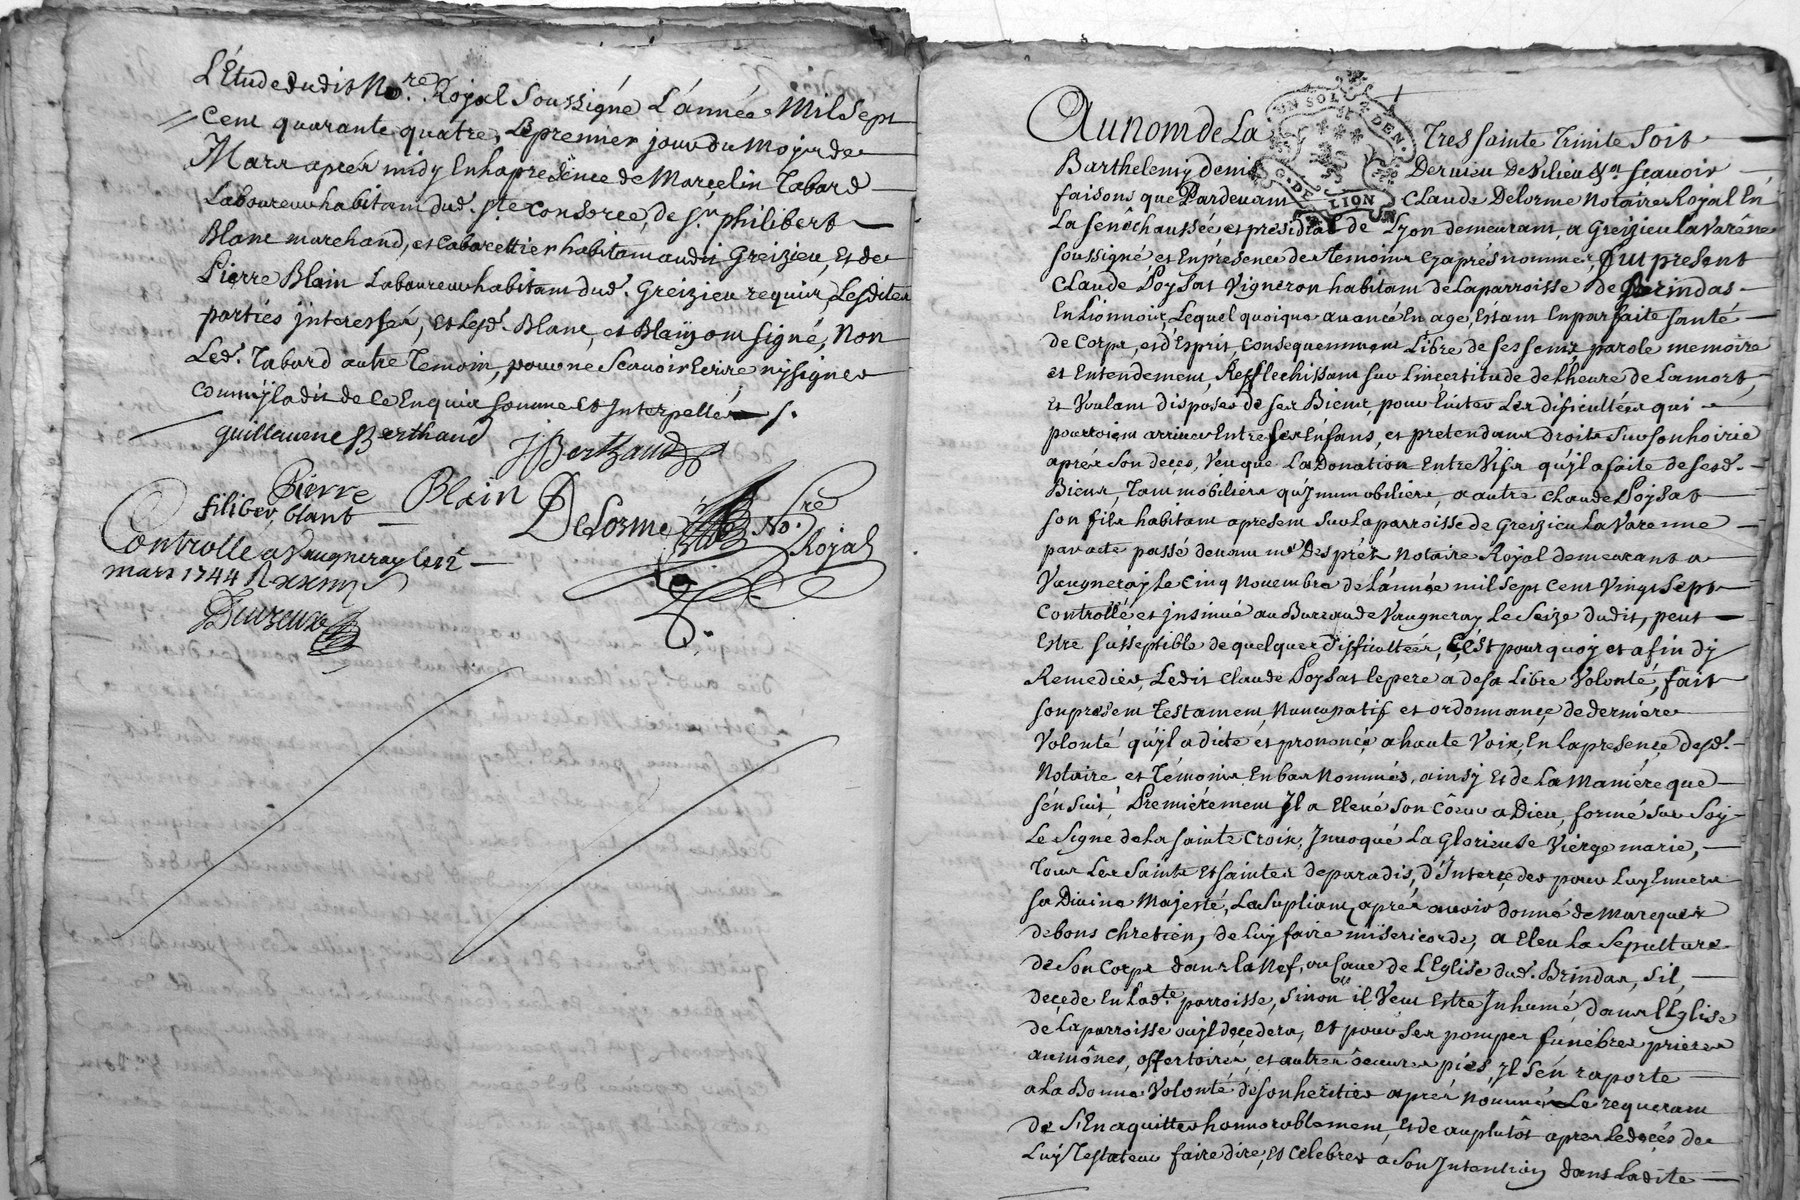 L'Etude dudit No.re Royal Soussigné L'année Mil Sept
Cent quarante quatre, Le premier jour du Mois de
Mars apres midy En la presence de Marcelin Tabard
Laboureur habitant dud. Ste Consorce, de Sr. philibert
Blanc marchand, et Cabarettier habitant audit Greizieu, Et de
Pierre Blain Laboureur habitant dud. Greizieu requis, Lesdites
parties jnteressées, et Lesd. Blanc, et Blain ont signé, Non
Led. Tabard autre Temoin, pour ne Scavoir Ecrire ny signer
comm'jl a dit de ce Enquis sommé Et Interpellé ./.
guilleaume Berthaud
JBerthaud
Pierre Blain
filiber blant
DeLorme No.re Royal
Controllé a Vaugneray le 12e
mars 1744 R
UN SOL DEN.
G. DE LION
Au nom de La Tres sainte Trinité Soit
Barthelemy Dervieu De Vilieu Sgr. Scavoir
faisons que Pardevant Claude Delorme Notaire Royal En
La senêchaussée, et présidial de Lyon demeurant, a Greizieu la Varêne
soussigné et En presence des Temoins Cy aprés nommés, fut present
Claude Poysat Vigneron habitant de La parroisse de Brindas
En Lionnois, Lequel quoique avancé En age, Etant En parfaite santé
de Corps, et d'Esprit, Consequemment Libre de ses sens, parole memoire
et Entendement, Refflechissant sur L'incertitude de L'heure de La mort,
Et Voulant disposer de ses Biens, pour Eviter Les dificultées qui
pourroient arriver Entre ses Enfans, et pretendans droits sur son hoirie
aprés Son decès, Veu que La Donation Entre Vifs qu'jl a faite de sesd.
Biens, Tant mobiliers qu'jmmobiliers, a autre Claude Poysat
son fils habitant apresent sur La parroisse de Greizieu La Varenne
par acte passé devant me Despréz Notaire Royal demeurant a
Vaugneray Le Cinq Novembre de L'année mil sept Cent Vingt Sept
Controllé et jnsinué au Bureau de Vaugneray Le Seize dudit, peut
Estre susseptible de quelques difficultées, C'ést pourquoy et afin d'y
Remedier, Ledit Claude Poysat le pere a de sa Libre Volonté, fait
son present Testament Nuncupatif et ordonnance de derniére
Volonté qu'jl a dicté et prononcé a haute Voix, En La presence desd.
Notaire et Témoins En bas Nommés, ainsy Et de La Maniére que
s'énsuit, Premiérement Jl a Elevé Son Cœur a Dieu, formé sur Soy
Le Signe de La sainte Croix, Jnvoqué La Glorieuse Viérge marie,
Tous Les Saints Et saintes de paradis, d'Interceder pour Luy Envers
sa Divine Majesté, La Supliant, aprés avoir donné de Marques
de bons chretien, de Luy faire misericorde, a Eleu La Sepulture
de Son Corps dans la Nef, ou Cave de L'Eglise dud. Brindas, S'il,
decede En Lad.te parroisse, sinon il Veut Estre Jnhumé dans l'Eglise
de La parroisse ou jl decedera, et pour ses pompes funébres prieres
aumônes, offertoires, et autres œuvres piés, jl s'én raporte
a La Bonne Volonté de son heritier aprés nommé Le requerant
de S'En aquitter honnorablement, Et de au plutôt apres Le decés de
Luy Testateur faire dire, et Célebrer a Son Jntention dans Ladite